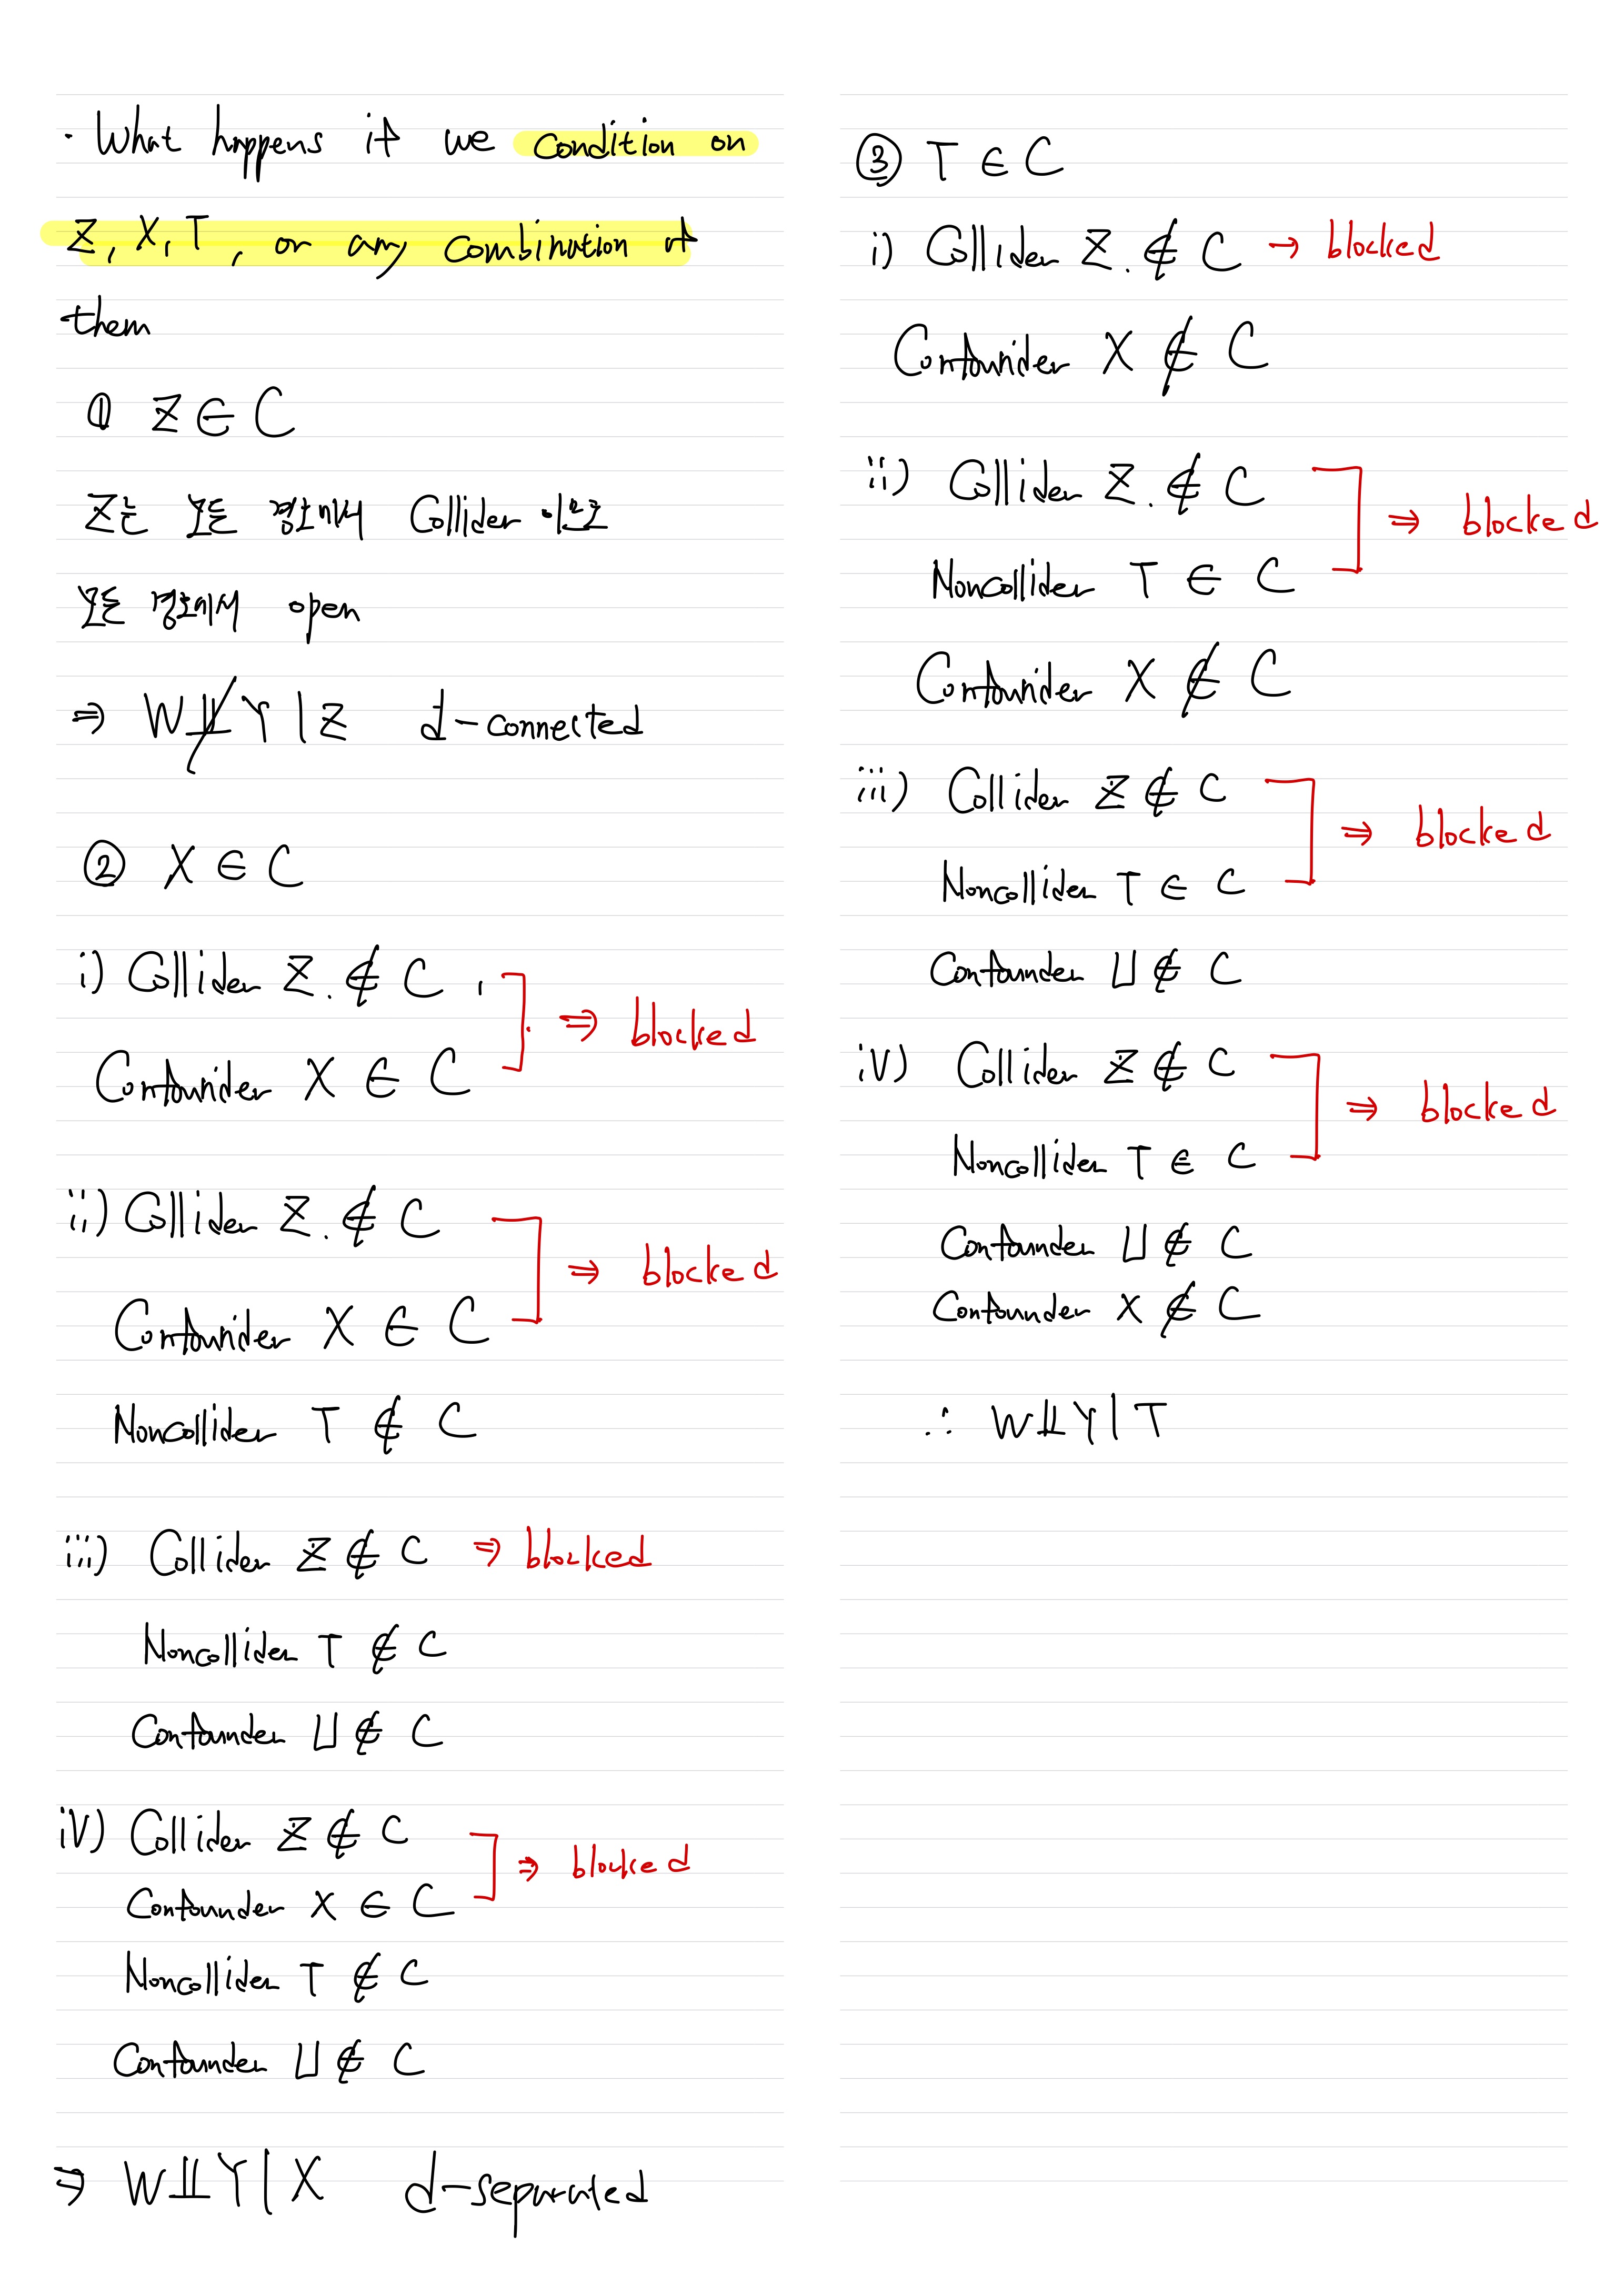 · What happens if we condition on
Z, X, T, or any combination of
them
① Z ∈ C
Z는 모든 경로에서 Collider 이므로
모든 경로에서 open
⇒ W⫫̸Y|Z d-connected
② X ∈ C
i) Collider Z. ∉ C, ⇒ blocked
Confounder X ∈ C
ii) Collider Z. ∉ C ⇒ blocked
Confounder X ∈ C
Noncollider T ∉ C
iii) Collider Z ∉ C ⇒ blocked
Noncollider T ∉ C
Confounder U ∉ C
iv) Collider Z ∉ C ⇒ blocked
Confounder X ∈ C
Noncollider T ∉ C
Confounder U ∉ C
⇒ W⫫Y|X d-separated
③ T ∈ C
i) Collider Z. ∉ C → blocked
Confounder X ∉ C
ii) Collider Z. ∉ C ⇒ blocked
Noncollider T ∈ C
Confounder X ∉ C
iii) Collider Z ∉ C ⇒ blocked
Noncollider T ∈ C
Confounder U ∉ C
iv) Collider Z ∉ C ⇒ blocked
Noncollider T ∈ C
Confounder U ∉ C
Confounder X ∉ C
∴ W⫫Y|T